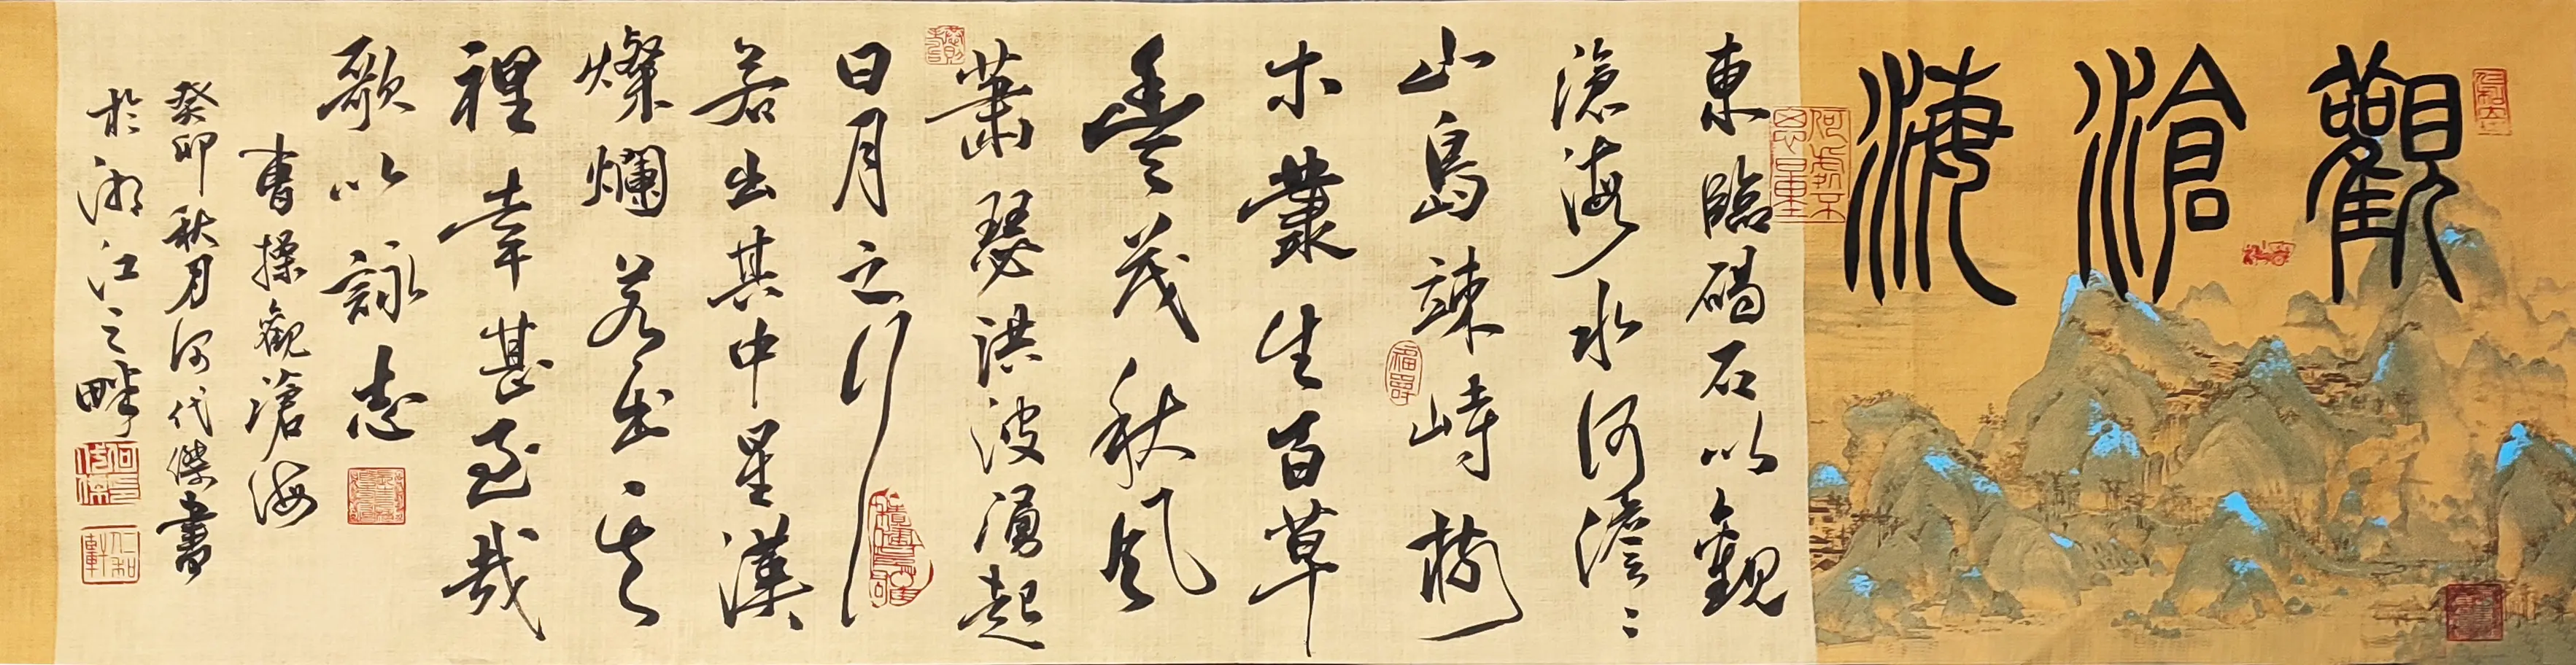 觀滄海
東臨碣石以觀
滄海水何澹〻
山島竦峙樹
木叢生百草
豐茂秋風
蕭瑟洪波湧起
日月之行
若出其中星漢
燦爛若出其
裡幸甚至哉
歌以詠志
曹操觀滄海
癸卯秋月何代傑書
於湘江之畔
仁和軒